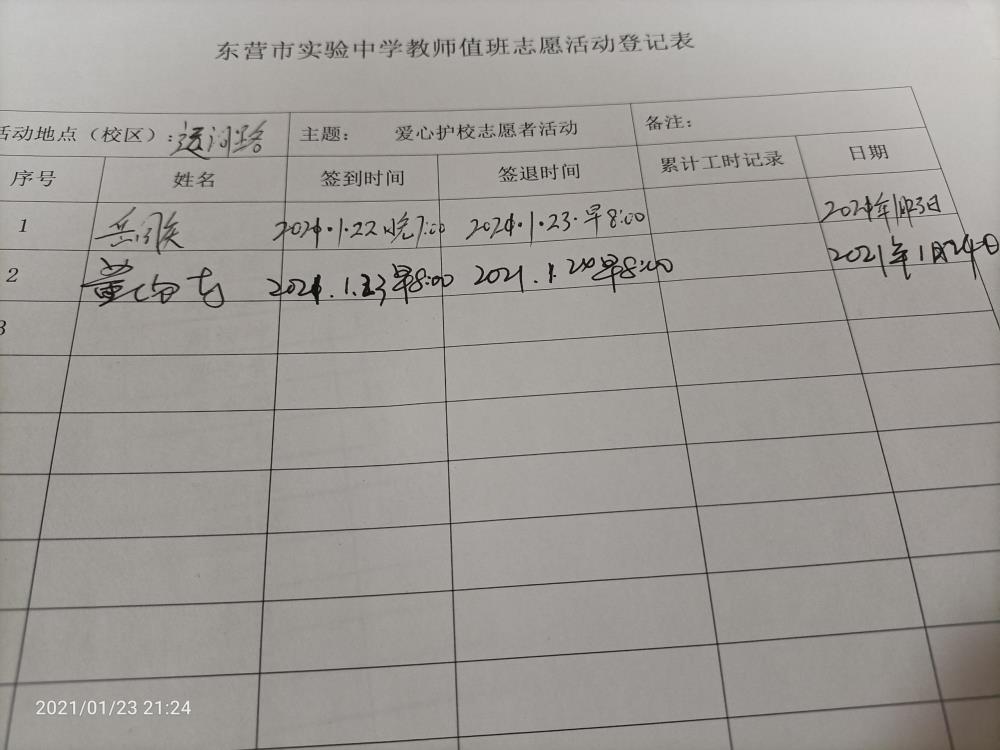 东营市实验中学教师值班志愿活动登记表
活动地点（校区）：运河路 主题： 爱心护校志愿者活动 备注：
序号 姓名 签到时间 签退时间 累计工时记录 日期
1 2021.1.22晚7:00 2021.1.23.早8:00 2021年1月23日
2 董 2021.1.23早8:00 2021.1.24早8:00 2021年1月24日
3
2021/01/23 21:24